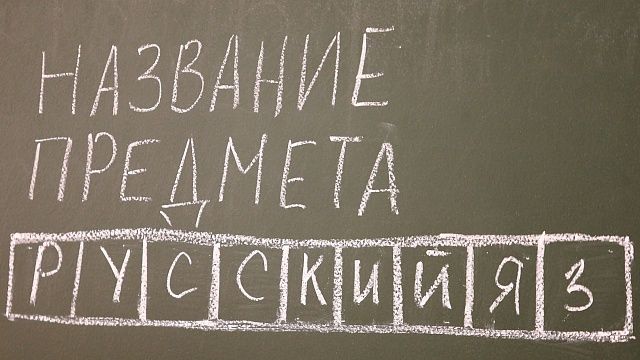 НАЗВАНИЕ
ПРЕДМЕТА
РУССКИЙЯЗ